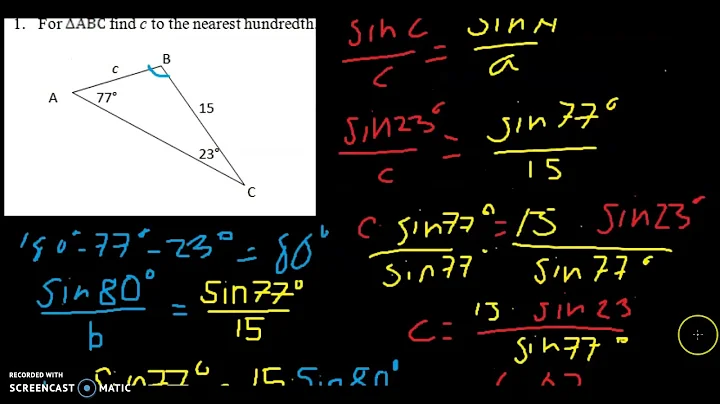 1. For ΔABC find c to the nearest hundredth.
B
c
A
77°
15
23°
C
sin C / c = sin A / a
sin23° / c = sin 77° / 15
c sin77° / sin77 = 15 sin23° / sin77°
c = 15 sin 23 / sin77°
180°-77°-23° = 80°
sin80° / b = sin77° / 15
sin77° = 15 sin80°
RECORDED WITH
SCREENCAST MATIC